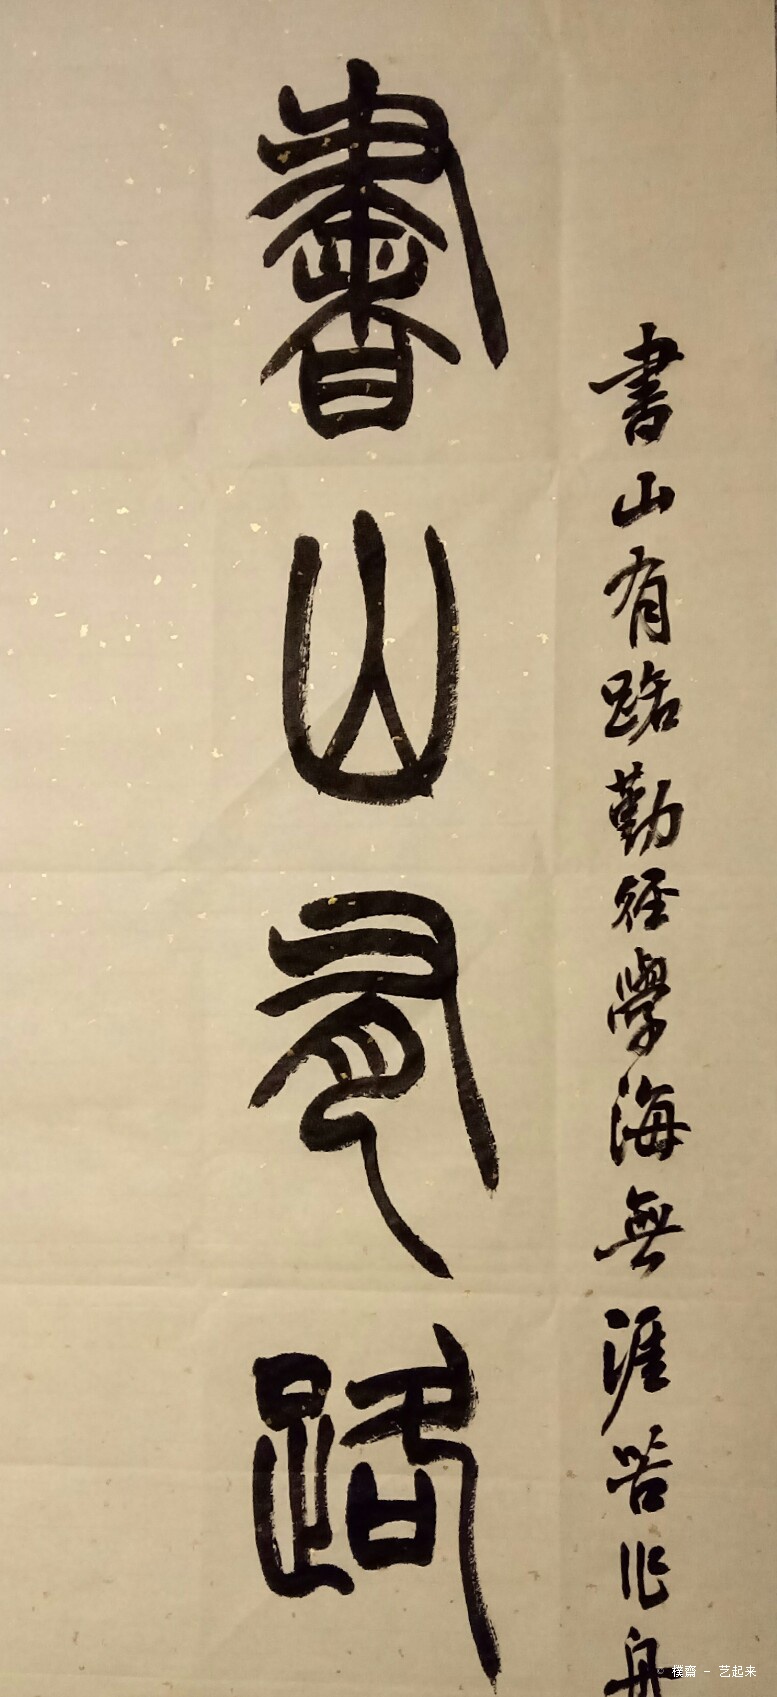 書山有路勤径學海無涯苦作舟
書山有路
© 樸齋 - 艺起来